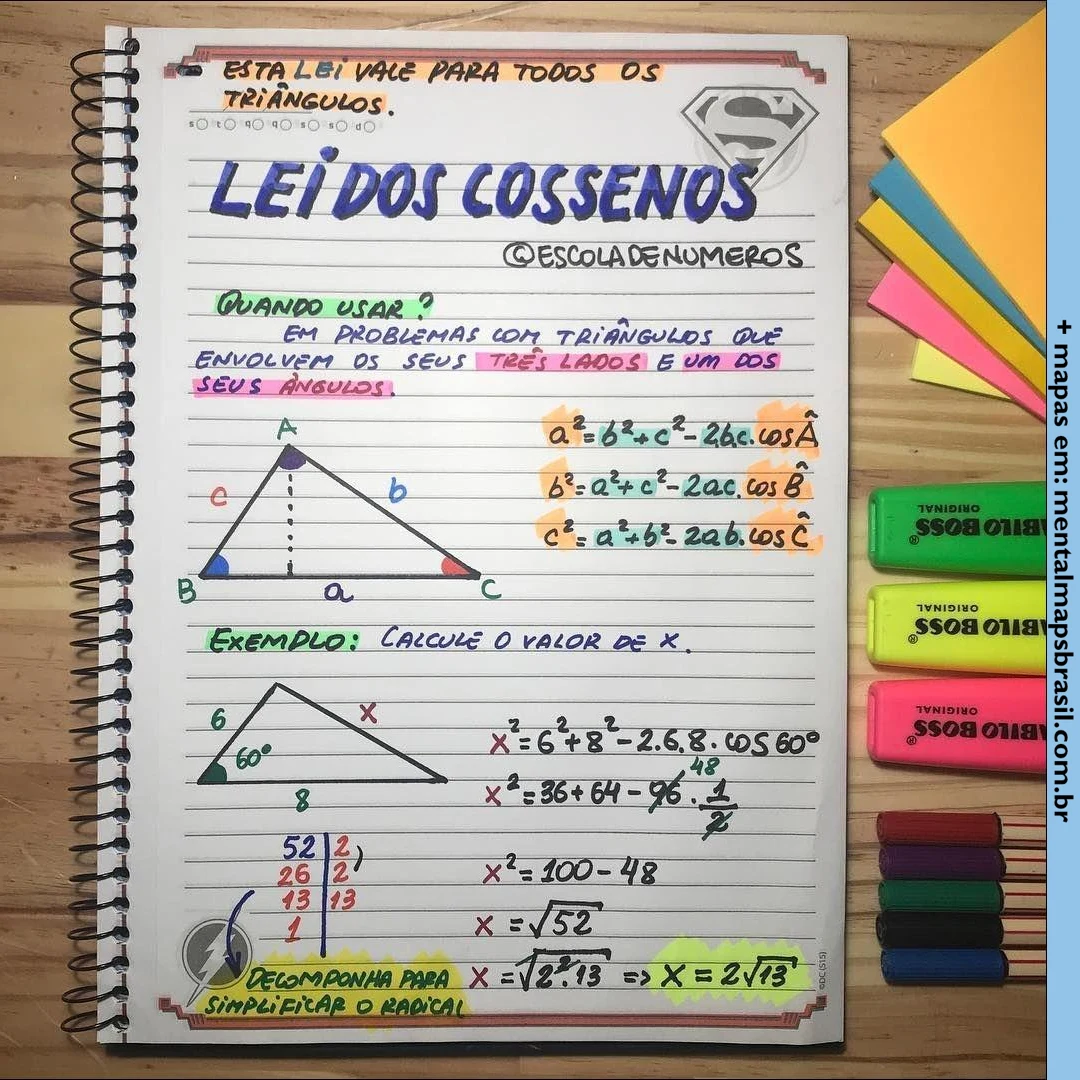 ESTA LEI VALE PARA TODOS OS
TRIÂNGULOS.
s t q q s s d
LEI DOS COSSENOS
@ESCOLADENUMEROS
QUANDO USAR?
EM PROBLEMAS COM TRIÂNGULOS QUE
ENVOLVEM OS SEUS TRÊS LADOS E UM DOS
SEUS ÂNGULOS.
A
c
b
B
a
C
a² = b² + c² - 2bc. cos Â
b² = a² + c² - 2ac. cos B̂
c² = a² + b² - 2ab. cos Ĉ
EXEMPLO: CALCULE O VALOR DE X.
6
x
60°
8
x² = 6² + 8² - 2.6.8. COS 60°
48
x² = 36 + 64 - 96 . 1/2
x² = 100 - 48
x = √52
x = √2².13 => x = 2√13
52 | 2
26 | 2
13 | 13
1
DECOMPONHA PARA
SIMPLIFICAR O RADICAL
©DC (S15)
+ mapas em: mentalmapsbrasil.com.br
ABILO BOSS
ORIGINAL
ABILO BOSS
ORIGINAL
ABILO BOSS
ORIGINAL